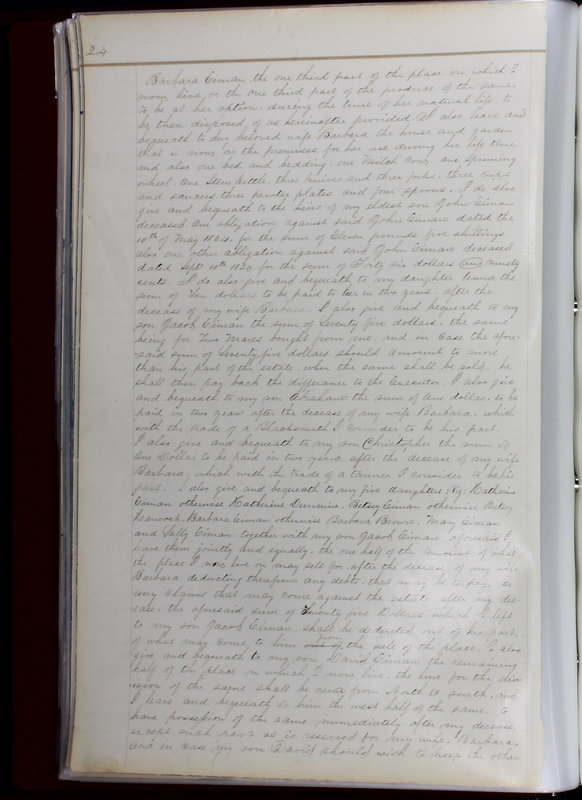 24
Barbara Ciman. the one third part of the place on which I
now live, or the one third part of the produce of the same.
to be at her option. during the time of her natural life, to
be then disposed of as hereinafter provided. I also leave and
bequeath to my beloved wife Barbara the house and garden
that is now on the premises for her use during her life time
and also one bed and bedding. one Milch Cow, one Spinning
wheel, one Stew Kettle, three knives and three forks. three cups
and saucers. three pewter plates and four spoons. I do also
give and bequeath to the heirs of my eldest son John Ciman
deceased One obligation against said John Ciman dated the
10th of May 1804. for the sum of Eleven pounds five shillings.
also one other obligation against said John Ciman deceased
dated Sept 10th 1820 for the sum of Forty six dollars and ninety
cents. I do also give and bequeath to my daughter the
sum of Ten dollars to be paid to her in two years. after the
decease of my wife Barbara. I also give and bequeath to my
son Jacob Ciman the sum of Seventy five dollars. the same
being for Two Mares bought from me. and in case the afore-
said sum of Seventy five dollars should amount to more
than his part of the estate when the same shall be sold. he
shall then pay back the differance to the Executor. I also give
and bequeath to my son Abraham the sum of one dollar. to be
paid in two years after the decease of my wife Barbara. which
with the trade of a Blacksmith I consider to be his part.
I also give and bequeath to my son Christopher the sum of
One Dollar to be paid in two years after the decease of my wife
Barbara. which with the trade of a tanner I consider to be his
part. I also give and bequeath to my five daughters; Viz; Katherine
Ciman otherwise Katherine Betsey Ciman otherwise Betsey
Hancock. Barbara Ciman otherwise Barbara Brown. Mary Ciman
and Sally Ciman. together with my son Jacob Ciman aforesaid I
leave them jointly and equally. the one half of the amount of what
the place I now live on may sell for. after the decease of my wife
Barbara deducting therefrom any debts. that may be to pay. or
any claims that may come against the estate after my de-
cease. the aforesaid sum of Seventy five Dollars which I left
to my son Jacob Ciman. shall be deducted out of his part.
of what may come to him from the sale of the place. I also
give and bequeath to my son David Ciman the remaining
half of the place on which I now live. the line for the divi-
vision of the same shall be run from North to South. and
I leave and bequeath to him the west half of the same. to
have possession of the same immediately after my decease.
except such part as is reserved for my wife. Barbara.
and in case my son David should wish to keep the other